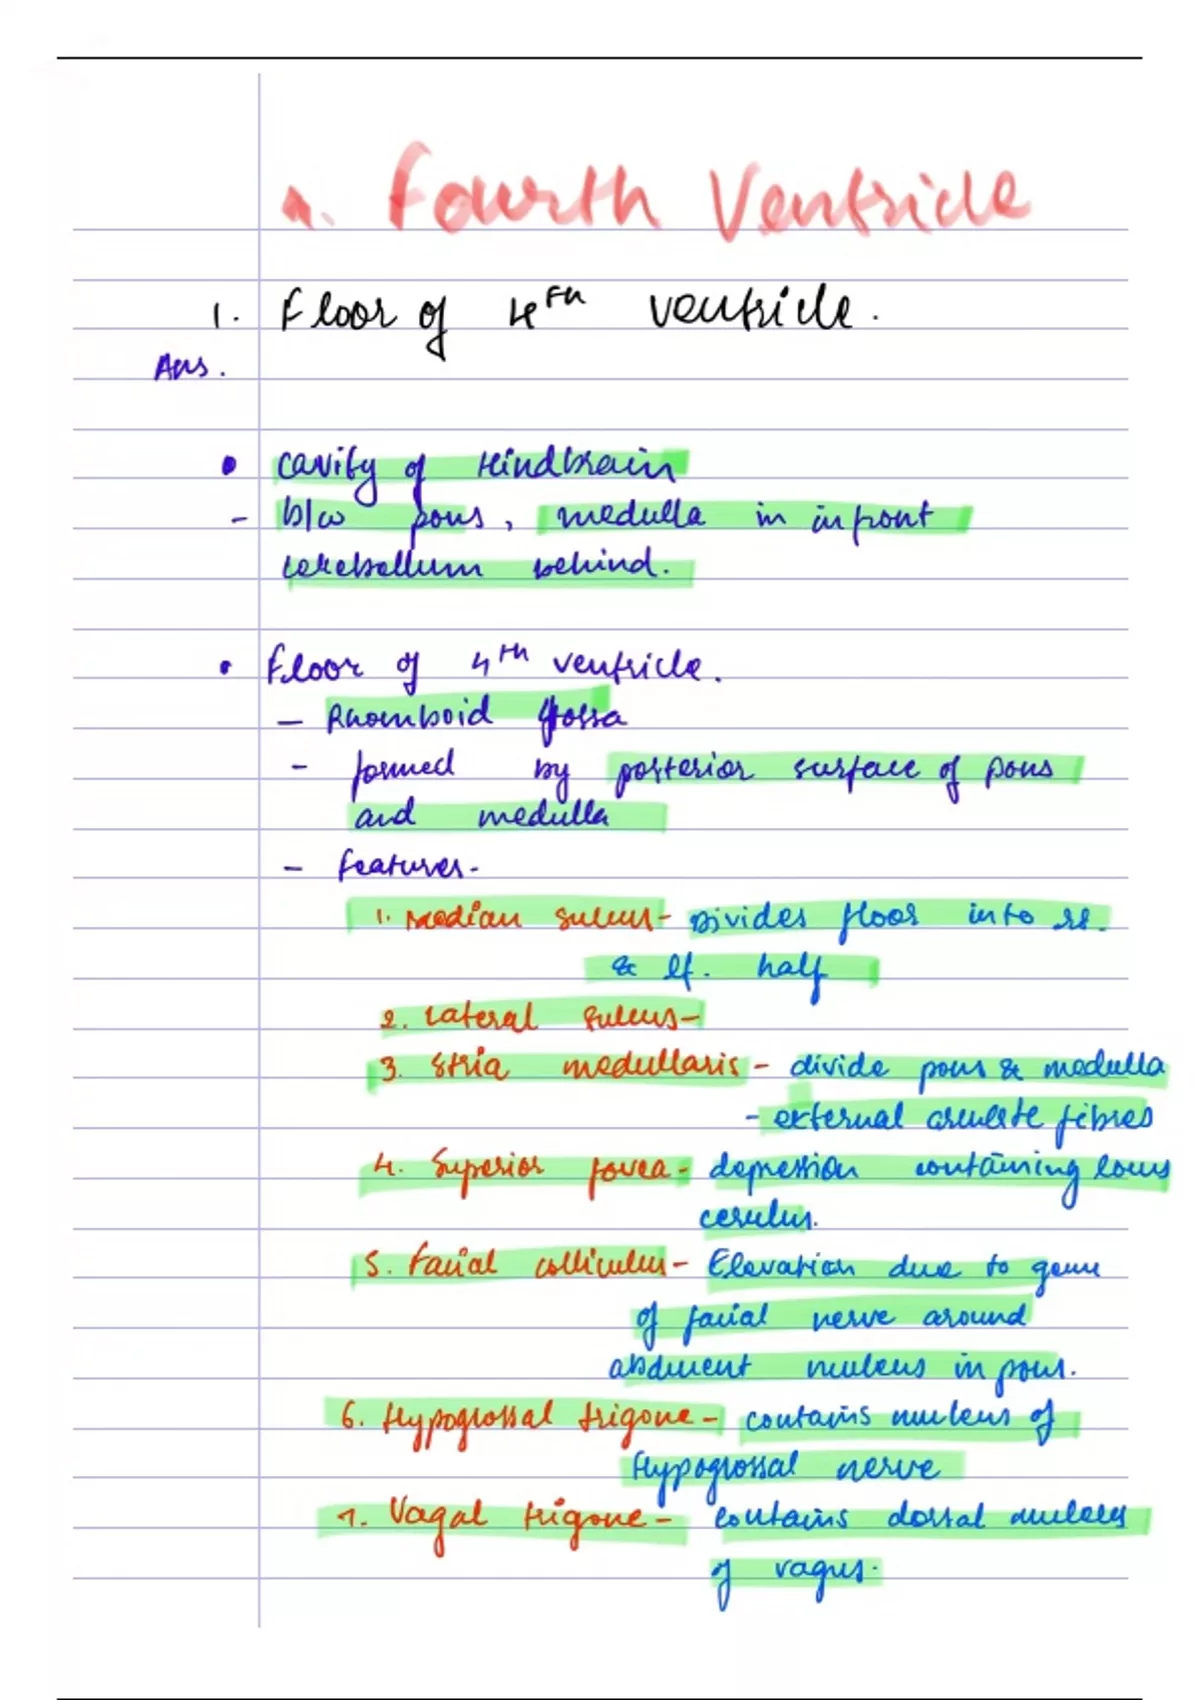 1. Fourth Ventricle
1. Floor of 4th ventricle.
Ans.
• cavity of Hindbrain
- b/w pons, medulla in infront
cerebellum behind.
• Floor of 4th ventricle.
- Rhomboid fossa
- formed by posterior surface of pons
and medulla
- features-
1. Median sulcus- Divides floor into rt.
& lf. half
2. Lateral sulcus-
3. Stria medullaris - divide pons & medulla
- external arcuate fibres
4. Superior fovea - depression containing locus
cerulus.
5. Facial colliculus- Elevation due to genu
of facial nerve around
abducent nucleus in pons.
6. Hypoglossal trigone- contains nucleus of
Hypoglossal nerve
7. Vagal trigone- contains dorsal nucleus
of vagus.